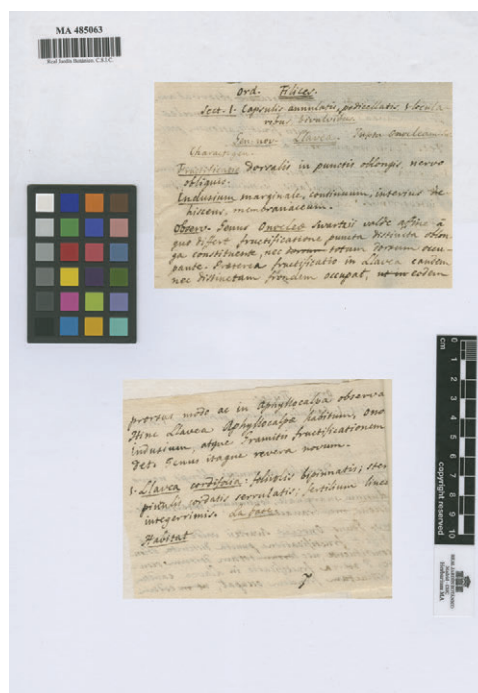 MA 485063
Real Jardín Botánico. C.S.I.C.
ord. Filices.
Sect. 1. Capsulis annulatis, pedicellatis
Gen. nov. Llavea.
Fructificatio dorsalis in punctis oblongis, nervo
obliquis.
Indusium marginale, continuum, interius de
hiscens, membranaceum.
Observ. Genus Onoclea Swartzii valde affine a
quo differt fructificatione puncta distincta oblon
ga constituente, nec totum dorsum occu-
pante. Praeterea fructificatio in Llavea eandem
nec distinctam frondem occupat, eodem
prorsus modo ac in Aphyllocalpa observa
Hinc Llavea Aphyllocalpa habitum, Ono
indusium, atque fructificationem
det. Genus itaque revera novum.
1. Llavea cordifolia: foliolis bipinnatis; ster
pinnulis cordatis serrulatis; fertilium linea
integerrimis.
Habitat
cm
0
1
2
3
4
5
6
7
8
9
10
copyright reserved
REAL JARDIN BOTANICO
MADRID
CSIC
Herbarium MA